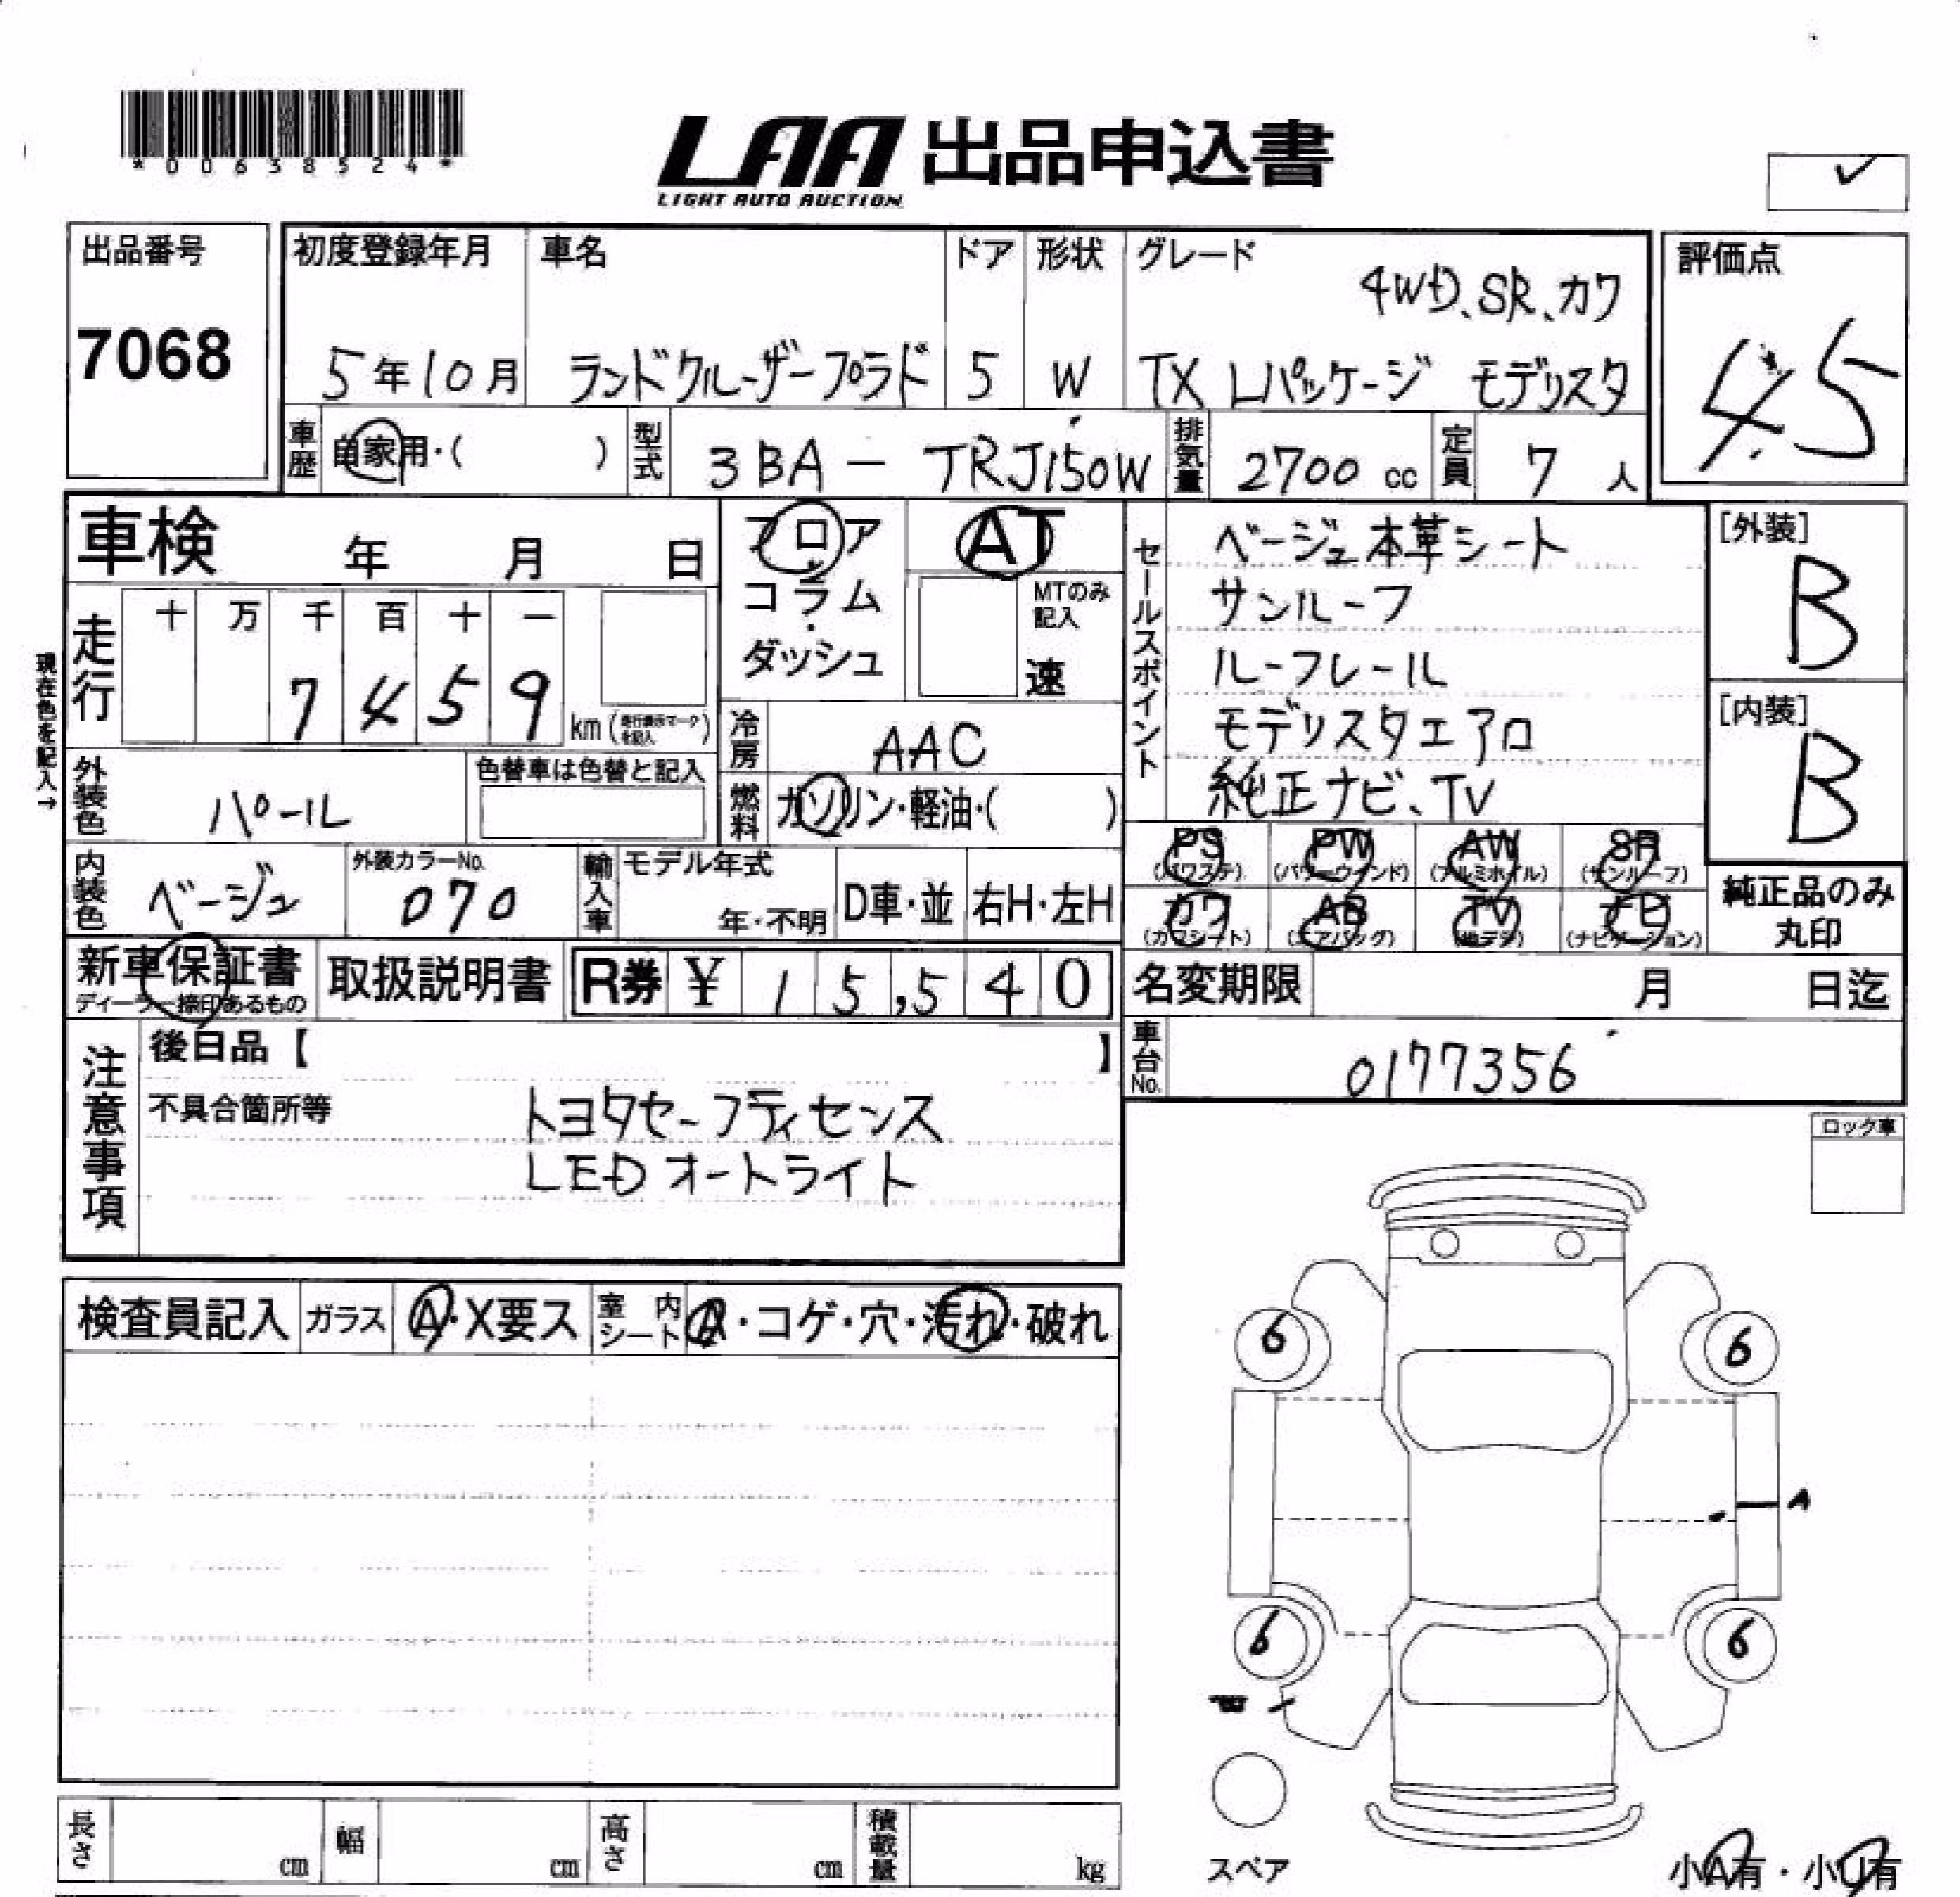 *00638524*
LAA 出品申込書
LIGHT AUTO AUCTION
✓
出品番号
7068
初度登録年月
5年10月
車名
ランドクルーザープラド
ドア
5
形状
W
グレード
4WD、SR、カワ
TX Lパッケージ モデリスタ
評価点
4.5
車歴
自家用・( )
型式
3BA - TRJ150W
排気量
2700 cc
定員
7 人
車検 年 月 日
フロア
コラム
・
ダッシュ
AT
MTのみ
記入
速
走行
十 万 千 百 十 一
7 4 5 9
km (走行表示マークを記入)
現在色を記入→
外装色
パール
色替車は色替と記入
冷房
AAC
燃料
ガソリン・軽油・( )
内装色
ベージュ
外装カラーNo.
070
輸入車
モデル年式
年・不明
D車・並
右H・左H
セールスポイント
ベージュ本革シート
サンルーフ
ルーフレール
モデリスタエアロ
純正ナビ、TV
[外装]
B
[内装]
B
PS
(パワステ)
PW
(パワーウインド)
AW
(アルミホイル)
SR
(サンルーフ)
カワ
(カワシート)
AB
(エアバッグ)
TV
(地デジ)
ナビ
(ナビゲーション)
純正品のみ
丸印
新車保証書
ディーラー捺印あるもの
取扱説明書
R券 ¥ 15,540
名変期限 月 日迄
車台No.
0177356
注意事項
後日品【 】
不具合箇所等
トヨタセーフティセンス
LEDオートライト
ロック車
検査員記入
ガラス
A・X要ス
室内シート
A・コゲ・穴・汚れ・破れ
6
6
A
6
6
スペア
長さ cm
幅 cm
高さ cm
積載量 kg
小A有・小U有